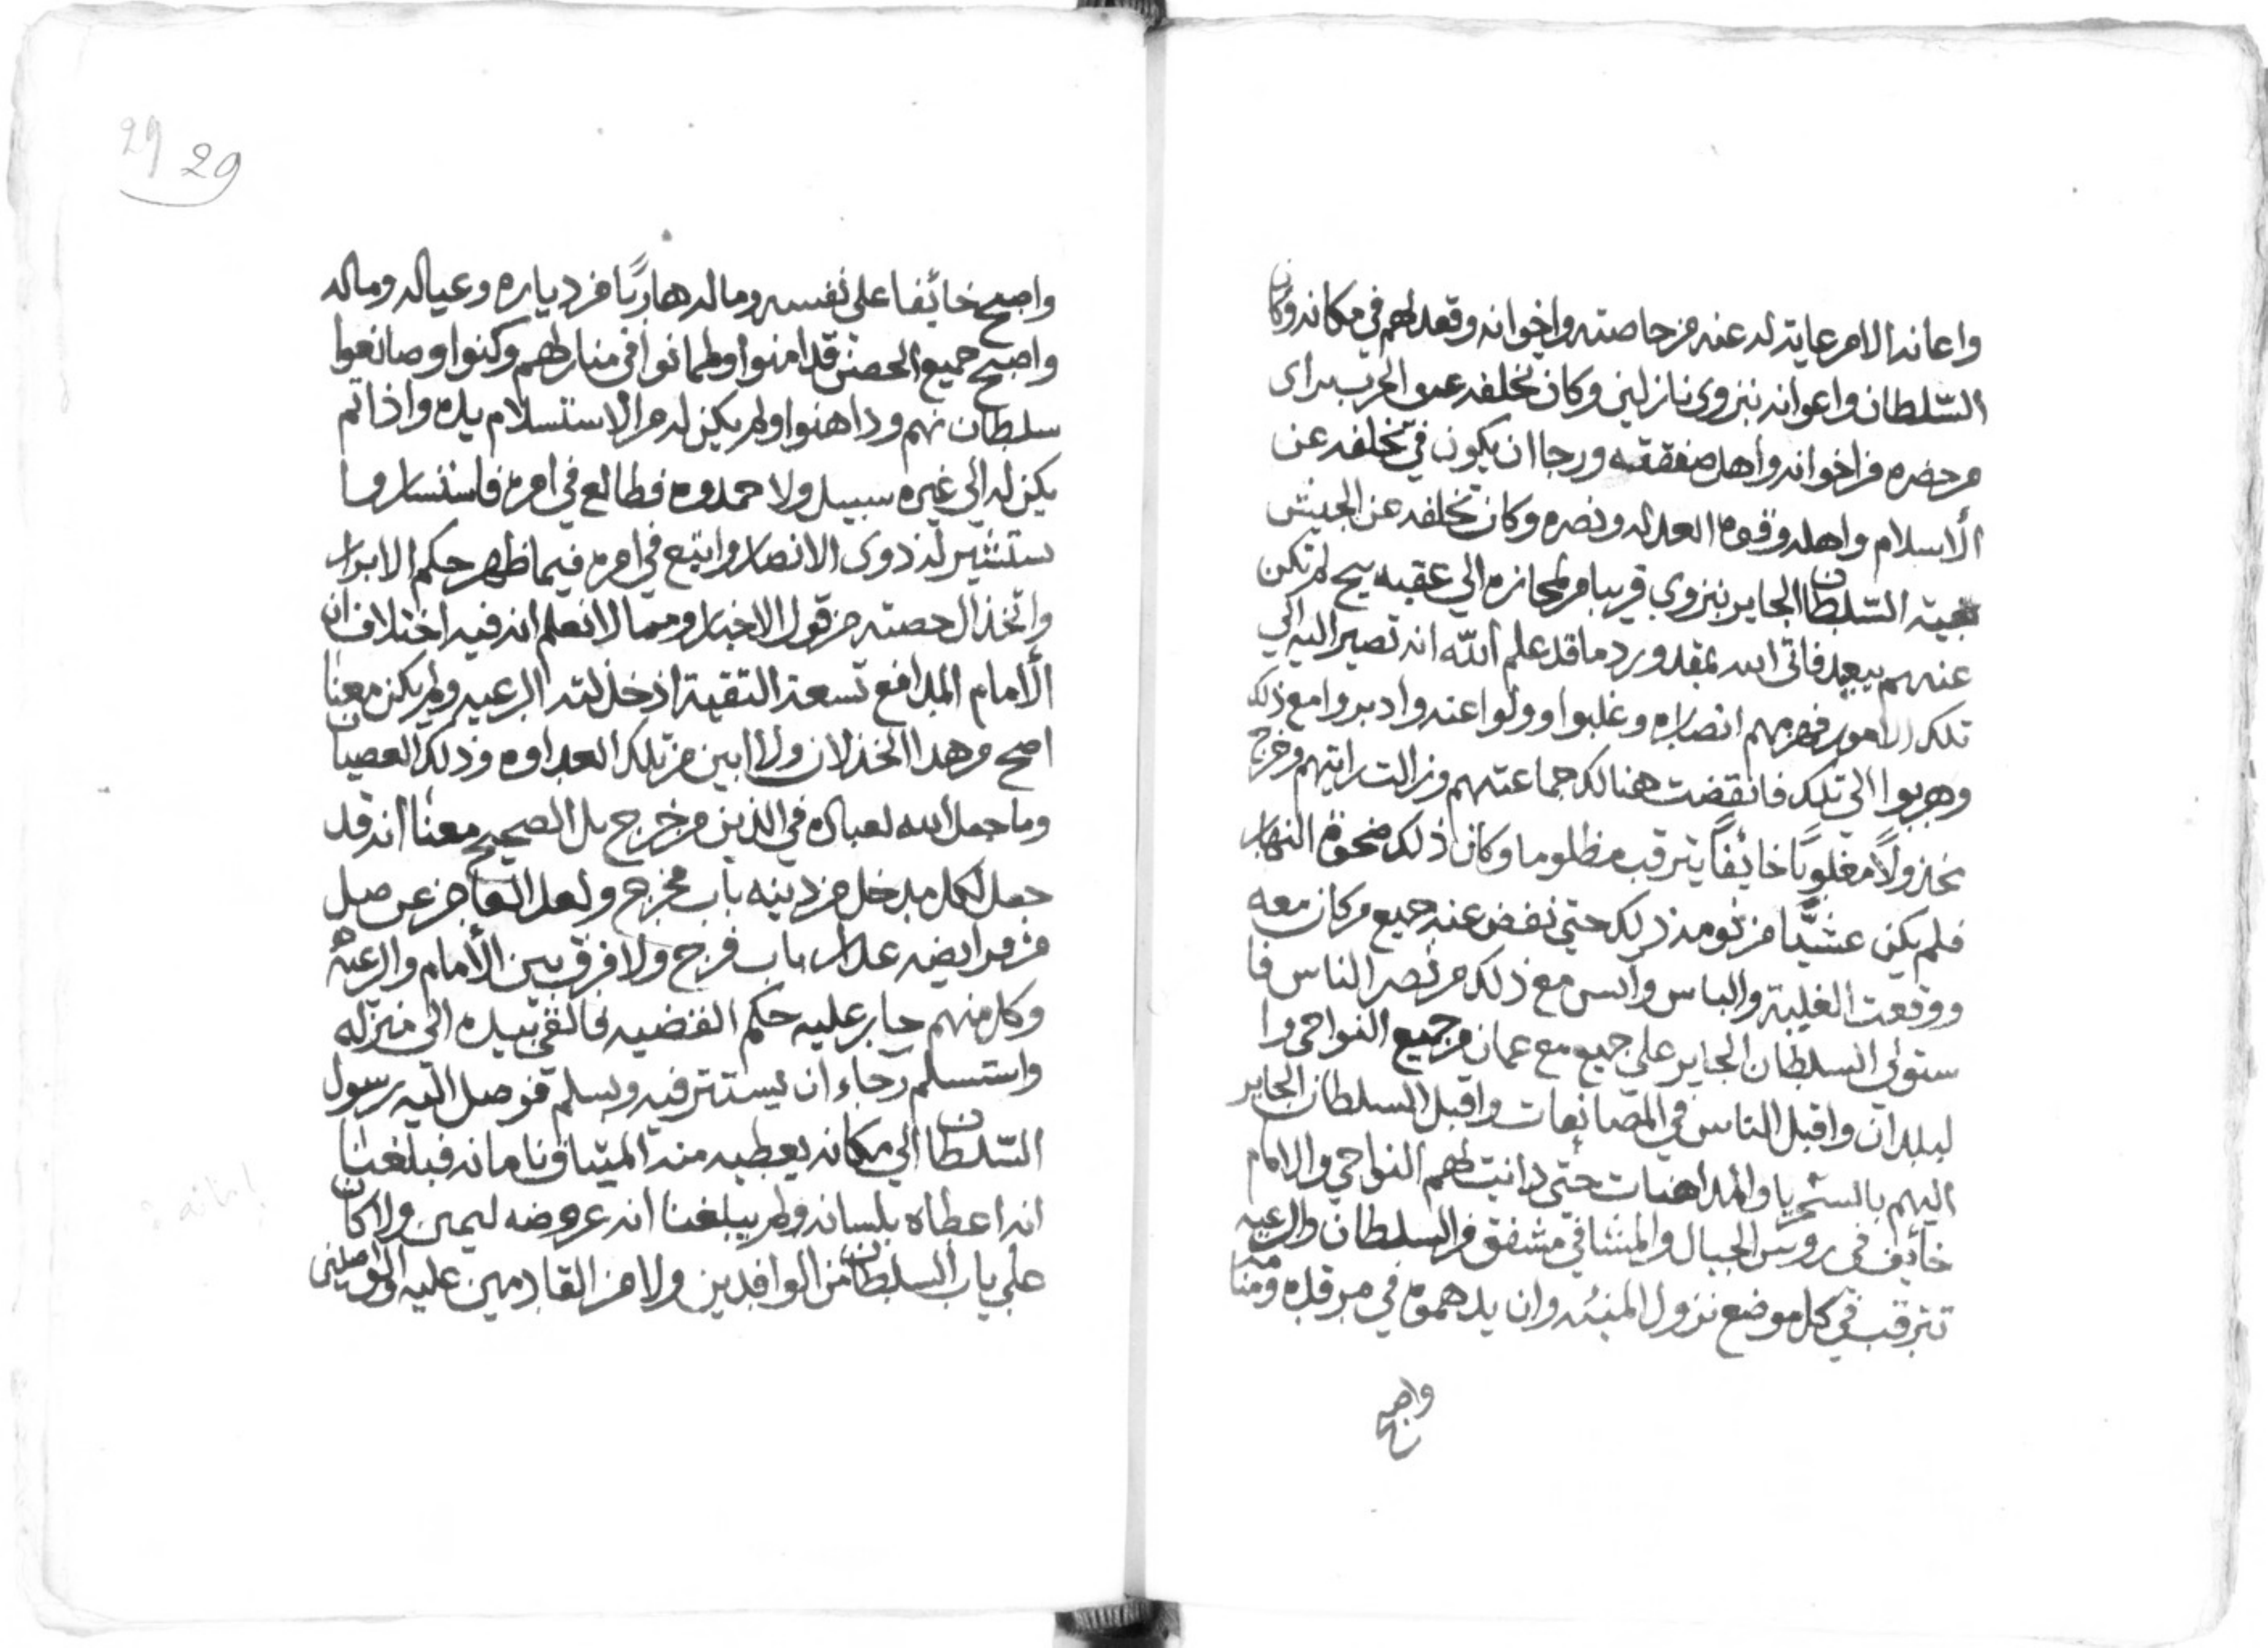 واعانه الامر عايته له عنه من حاصته واخوانه وقعد لهم في مكانه وكان
السّلطان واعوانه بنزوى نازلين وكان تخلفه عن الحرب براى
من حضره من اخوانه واهل صفقته ورجا ان يكون في تخلفه عن
الأسلام واهله وقوة العدله ونصره وكان تخلفه عن الجيش
السّلطان الجاير بنزوي قريبا من لمحازه الي عقبه يح لم تكن
عنهم ببعيد فاتى الله بمقدور وردما قد علم اللّه انه تصير اليه الي
تلك الامور فهزمهم انصاره وغلبوا وولوا عنه وادبروا مع ذلك
وهربوا الي تلك فانقضت هنالك جماعتهم وزالت رايتهم وخرج
مخذولاً مغلوبًا خائفاً يترقب مظلوما وكان ذلك ضحوة النهار
فلم يكن عشيًّا من يومه ذلك حتي نفض عنه جميع من كان معه
ووقعت الغلبة والباس وايس مع ذلك من نصر الناس فا
ستولي السلطان الجاير علي جميع مع عمان من جميع النواحي وا
لبلدان واقبل الناس في المصانعات واقبل السلطان الجاير
اليهم بالسّريا والمداهنات حتى دانت لهم النواحي والامام
خائف في روس الجبال والمنشافي مشفق من السلطان والرعيه
تترقب في كل موضع نزول المنيّه وان يدهموه في مرقده ومنامه
واصبح
29 29
واصبح خائفا على نفسه وماله هاربًا من دياره وعياله وماله
واصبح جميع الحصن قد امنوا وطمانوا في منازلهم وكنوا وصانعوا
سلطانهم وداهنوا ولم يكن له من الاستسلام يده واذا لم
يكن له الي غيره سبيل ولا حمدوه فطالع في امره فاستسار وا
ستشير له ذوى الانصار واتبع في امره فيما ظهر حكم الابرار
واتخذ ال حصته من قول الاخيار ومما لا نعلم انه فيه اختلاف ان
الأمام المدافع تسعة التقية اذ خذلته الرعيه ولم يكن معنا
اصح من هذا الخذلان ولا ابين من تلك العداوه وذلك العصيان
وما جعل الله لعباده في الدين من خرج بل الصحيح معنا انه قد
جعل لكل مدخل من دينه باب مخرج ولعل العاجز عن
من فرايضه علا باب فرج ولا فرق بين الأمام والرعيه
وكل منهم جايز عليه حكم القضيه فالقي بيده الى منزله
واستسلم رجاء ان يستتر فيه ويسلم فوصل اليه رسول
السّلطان الي مكانه يعطيه منه الميثاق نامانه فبلغنا
انه اعطاه بلسانه ولم يبلغنا انه عروضه ليمين ولا كان
علي باب السلطان من الوافدين ولا من القادمين عليه الواصلين